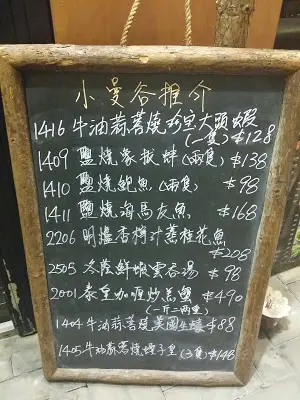 小曼谷推介
1416 牛油蒜蓉燒 大頭蝦
(一隻) $128
1409 鹽燒象拔蚌(兩隻) $138
1410 鹽燒鮑魚(兩隻) $98
1411 鹽燒海馬友魚 $168
2206 明爐香檸汁蒸桂花魚
$208
2505 冬陰鮮蝦雲吞湯 $98
2001 泰皇咖喱炒羔蟹 $490
(一斤二兩重)
1404 牛油蒜蓉燒美國生蠔 $88
1405 牛油蒜蓉燒蟶子皇(3隻) $148